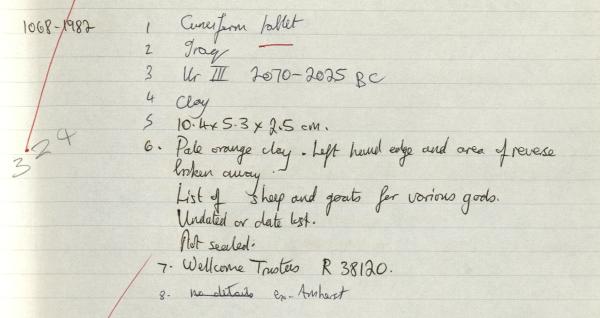 1068-1982 1 Cuneiform tablet
2 Iraq
3 Ur III 2070-2025 BC
4 Clay
5 10.4 x 5.3 x 2.5 cm.
6. Pale orange clay. Left hand edge and area of reverse
broken away.
List of sheep and goats for various gods.
Undated or date lost.
Not sealed.
7. Wellcome Trustees R 38120.
8. no details ex-Amherst
324